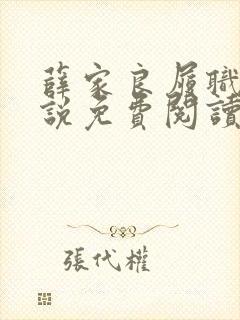 薛家良履職
說免費閱讀
張代權